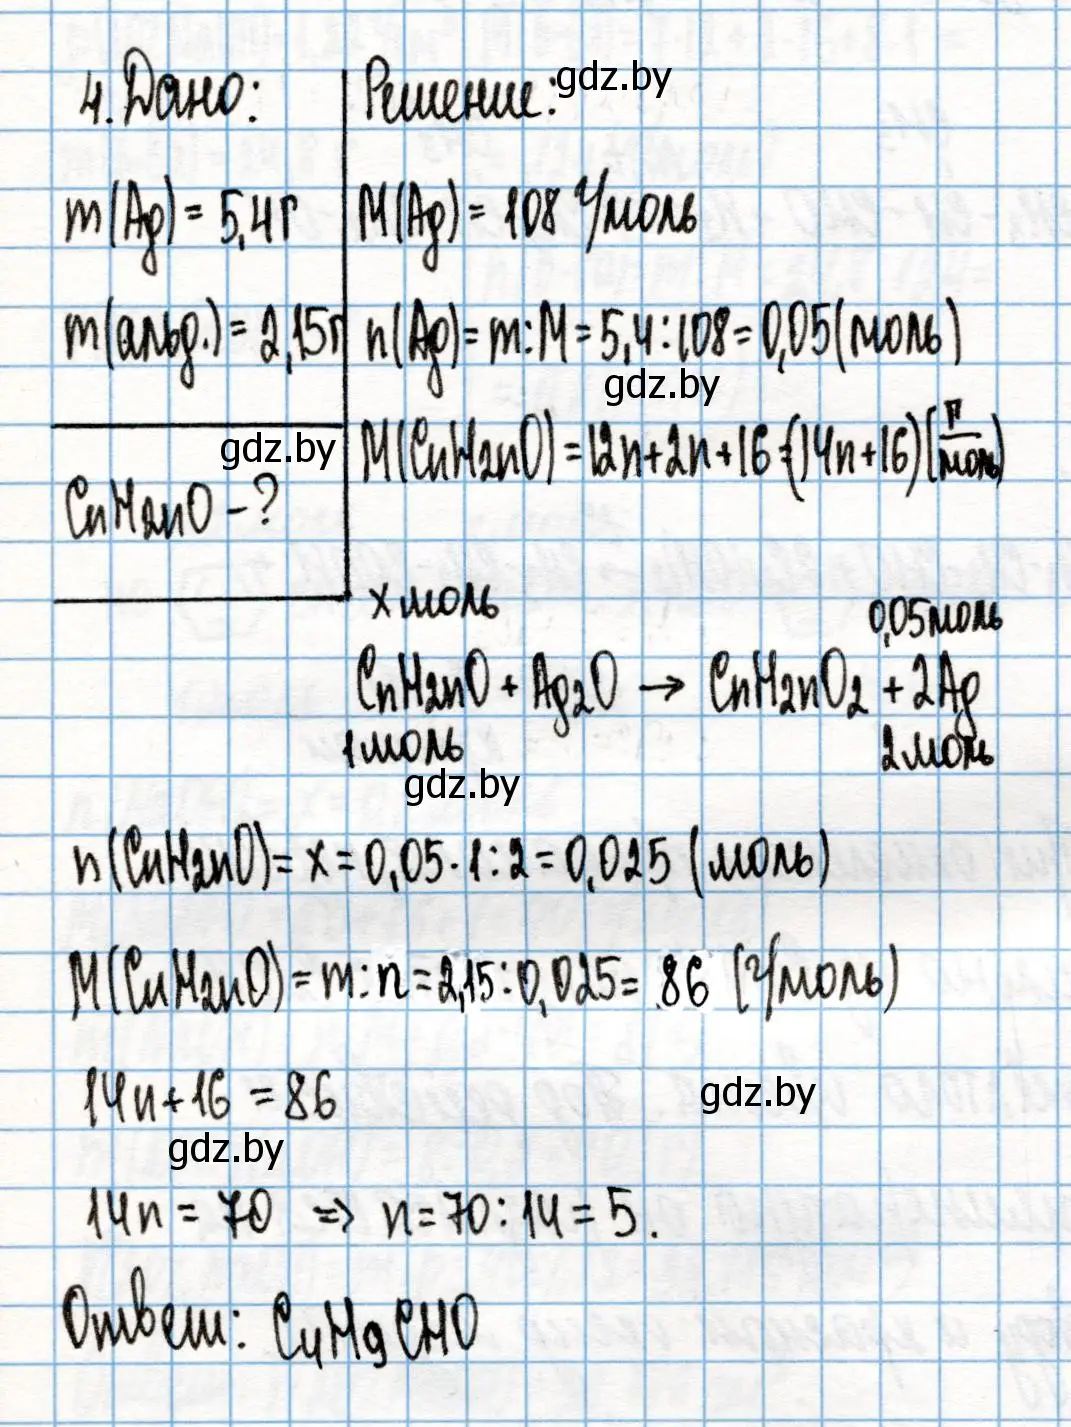 4. Дано:
Решение:
gdz.by
m(Ag) = 5,4г
M(Ag) = 108 г/моль
m(альд.) = 2,15г
n(Ag) = m:M = 5,4:108 = 0,05(моль)
gdz.by
gdz.by
M(CnH2nO) = 12n+2n+16=(14n+16)(г/моль)
CnH2nO - ?
x моль
0,05моль
CnH2nO + Ag2O → CnH2nO2 + 2Ag
1моль
2моль
gdz.by
n(CnH2nO)= x = 0,05·1:2 = 0,025 (моль)
M(CnH2nO) = m:n = 2,15:0,025 = 86 (г/моль)
14n+16 = 86
gdz.by
gdz.by
14n = 70 => n=70:14 = 5.
Ответ: C4H9CHO